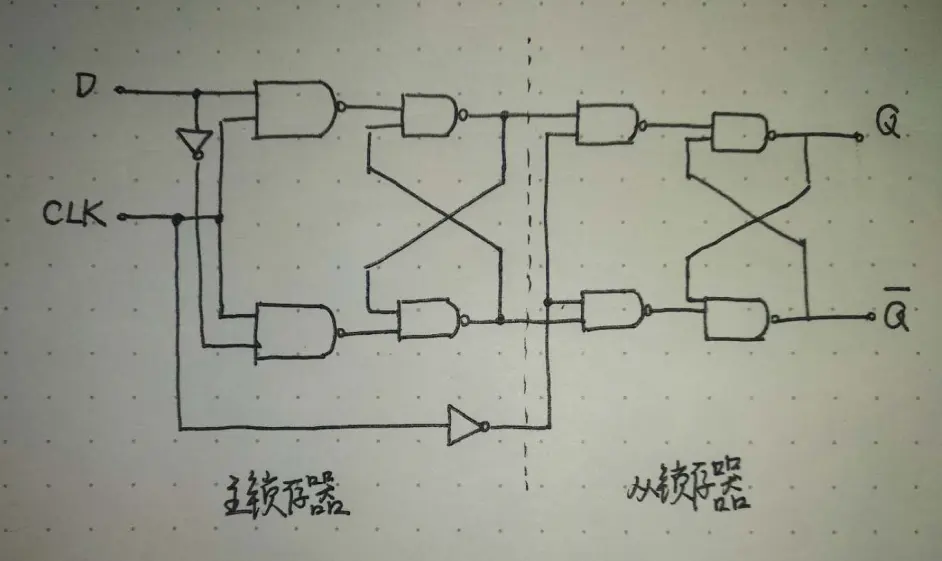 D
Q
CLK
Q̅
主锁存器
从锁存器